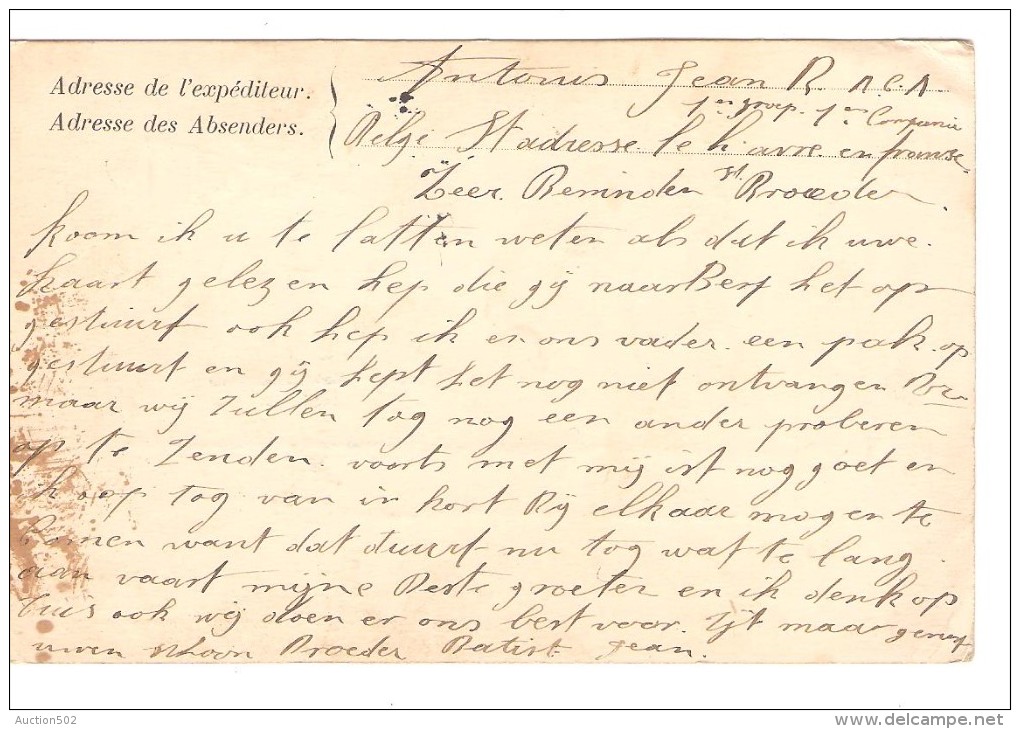 Adresse de l'expéditeur.
Adresse des Absenders.
Antonis Jean R. A.C.A
1en groep. 1en Companie
Belge St adresse le havre en franse
Zeer Beminden st. Broeder.
koom ik u te latten weten als dat ik uwe.
kaart gelezen hep die gij naar Berf het op
gestuurt ook hep ik en ons vader een pak op
gestuurt en gij hept het nog niet ontvangen
maar wij zullen tog nog een ander proberen
op te zenden. voorts met mij ist nog goet en
ik oop tog van in kort Bij elkaar mogen te
komen want dat duurt nu tog wat te lang
vaart mijne Beste groeten en ik denk op
ook wij doen er ons best voor. Zijt maar gerust
uwen schoon Broeder Batist Jean.
Auction502
www.delcampe.net